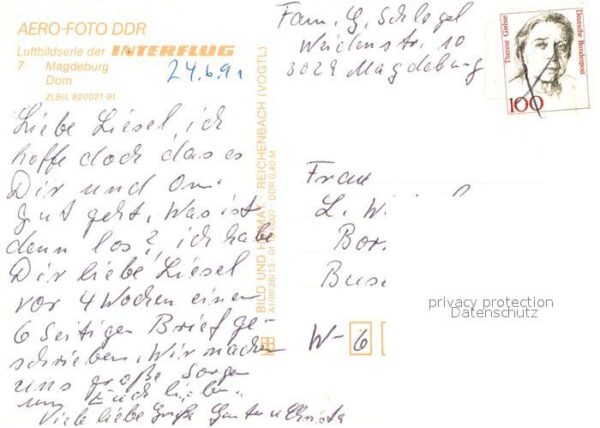 AERO-FOTO DDR
Luftbildserie der INTERFLUG
7 Magdeburg
Dom
ZLB/L 820021-91
24.6.91
Fam. G. Schlegel
Weidenstr. 10
3029 Magdeburg
Therese Giehse
Deutsche Bundespost
100
Liebe Liesel, ich
hoffe doch das es
Dir und
gut geht, Was ist
denn los?, ich habe
Dir liebe Liesel
vor 4 Wochen einen
6 Seitigen Brief ge-
schrieben, Wir machen
uns große Sorgen
um Euch lieben.
Viele liebe Grüße Günter u Christa
BILD UND HEIMAT REICHENBACH (VOGTL)
A1/III/26/13 DDR 0,40 M
Frau
L. W
Bor
Buse
W-6
privacy protection
Datenschutz